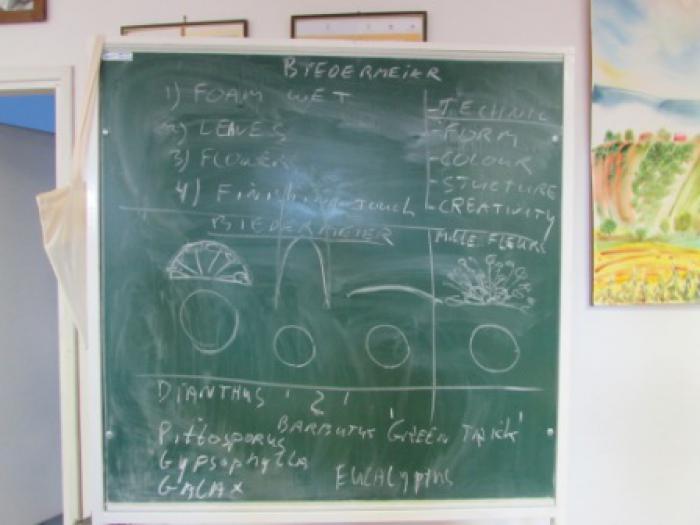 BIEDERMEIER
1) FOAM WET
2) LEAVES
3) FLOWERS
4) FINISHING TOUCH
-TECHNIC
-FORM
-COLOUR
-STUCTURE
-CREATIVITY
BIEDERMEIER
MILLE FLEURS
DIANTHUS ' 2 '
BARBUTUS 'GREEN TRICK'
PITTOSPORUS
GYPSOPHYLLA
EUCALYPTUS
GALAX